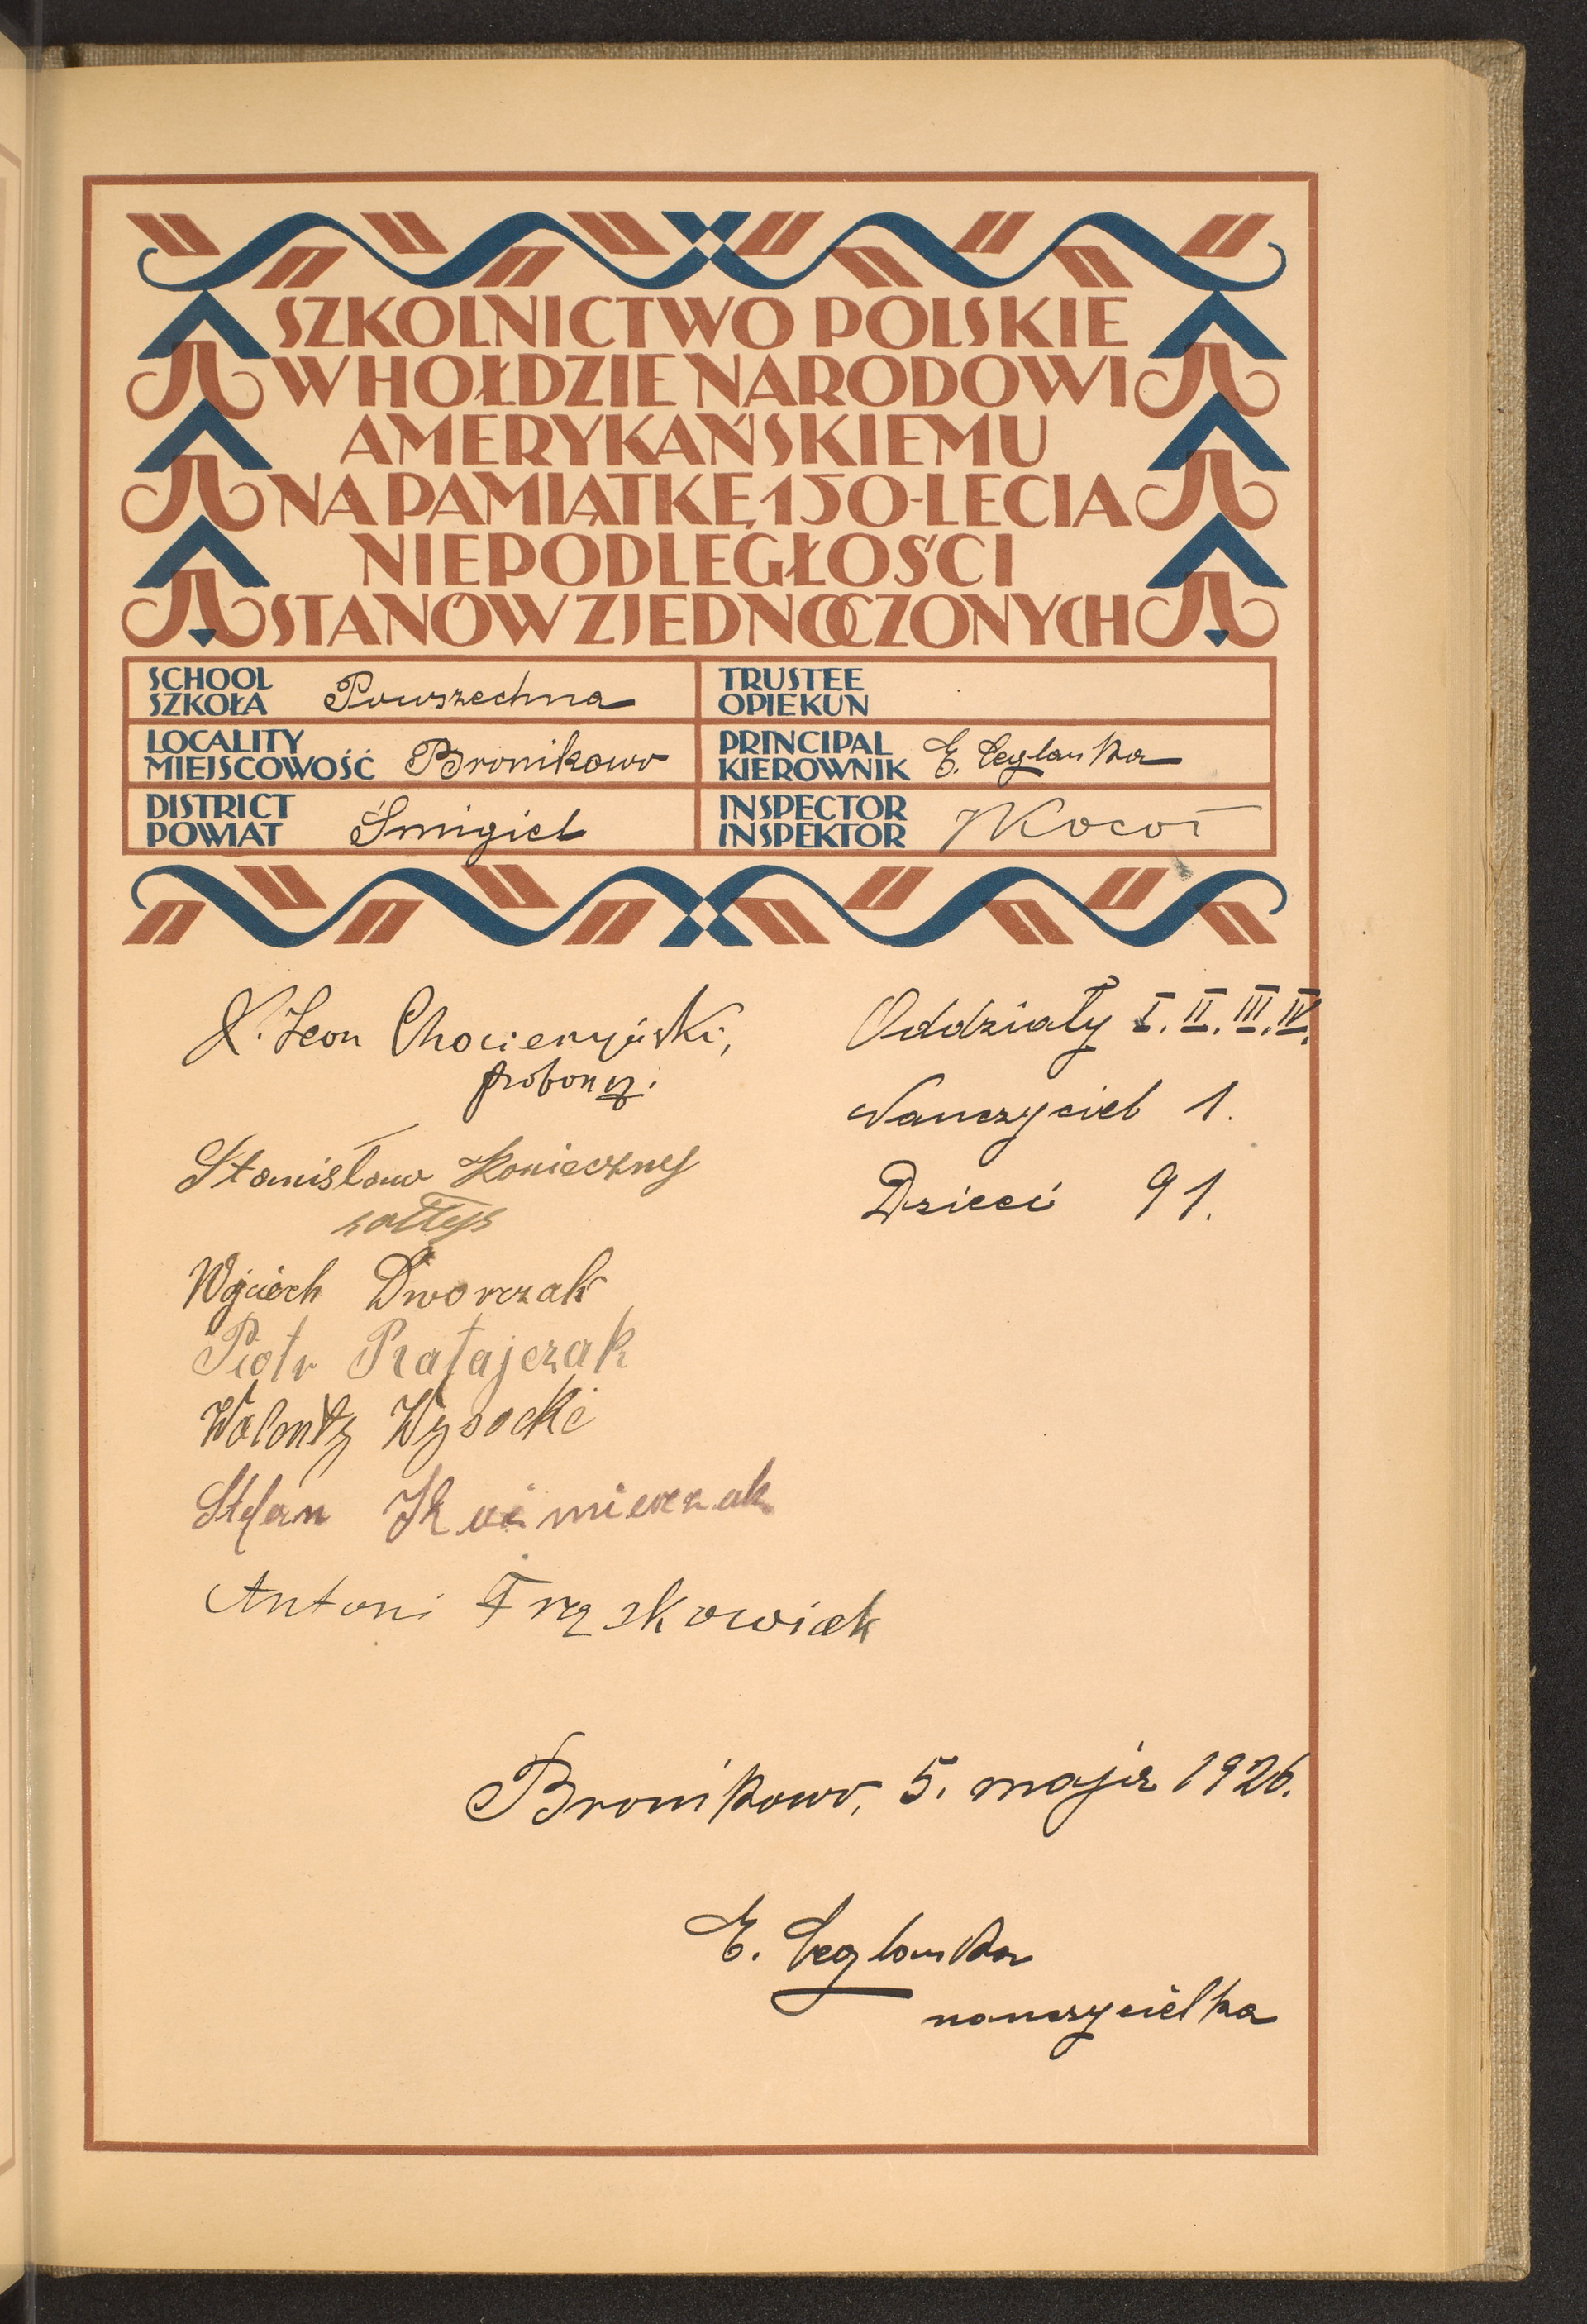 SZKOLNICTWO POLSKIE
W HOŁDZIE NARODOWI
AMERYKAŃSKIEMU
NA PAMIĄTKĘ 150-LECIA
NIEPODLEGŁOŚCI
STANÓW ZJEDNOCZONYCH
SCHOOL
SZKOŁA Powszechna
TRUSTEE
OPIEKUN
LOCALITY
MIEJSCOWOŚĆ Bronikowo
PRINCIPAL
KIEROWNIK E. Ceglarska
DISTRICT
POWIAT Śmigiel
INSPECTOR
INSPEKTOR Kocot
X. Leon
proboszcz.
Stanisław Konieczny
sołtys
Wojciech Dworczak
Piotr Ratajczak
Walenty Wysocki
Stefan Kuśmierczak
Antoni Frąskowiak
Oddziały I. II. III. IV.
Nauczyciel 1.
Dzieci 91.
Bronikowo, 5. maja 1926.
E. Ceglarska
nauczycielka